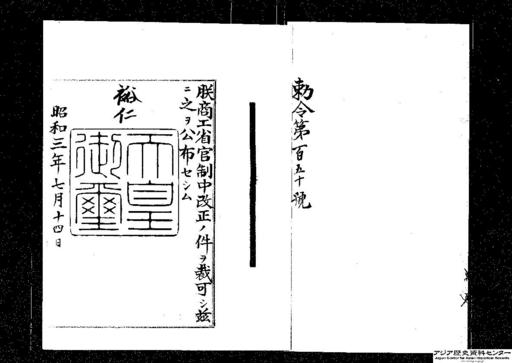 勅令第百五十號
朕商工省官制中改正ノ件ヲ裁可シ茲
ニ之ヲ公布セシム
裕仁
天皇
御璽
昭和三年七月十四日
アジア歴史資料センター
Japan Center for Asian Historical Records